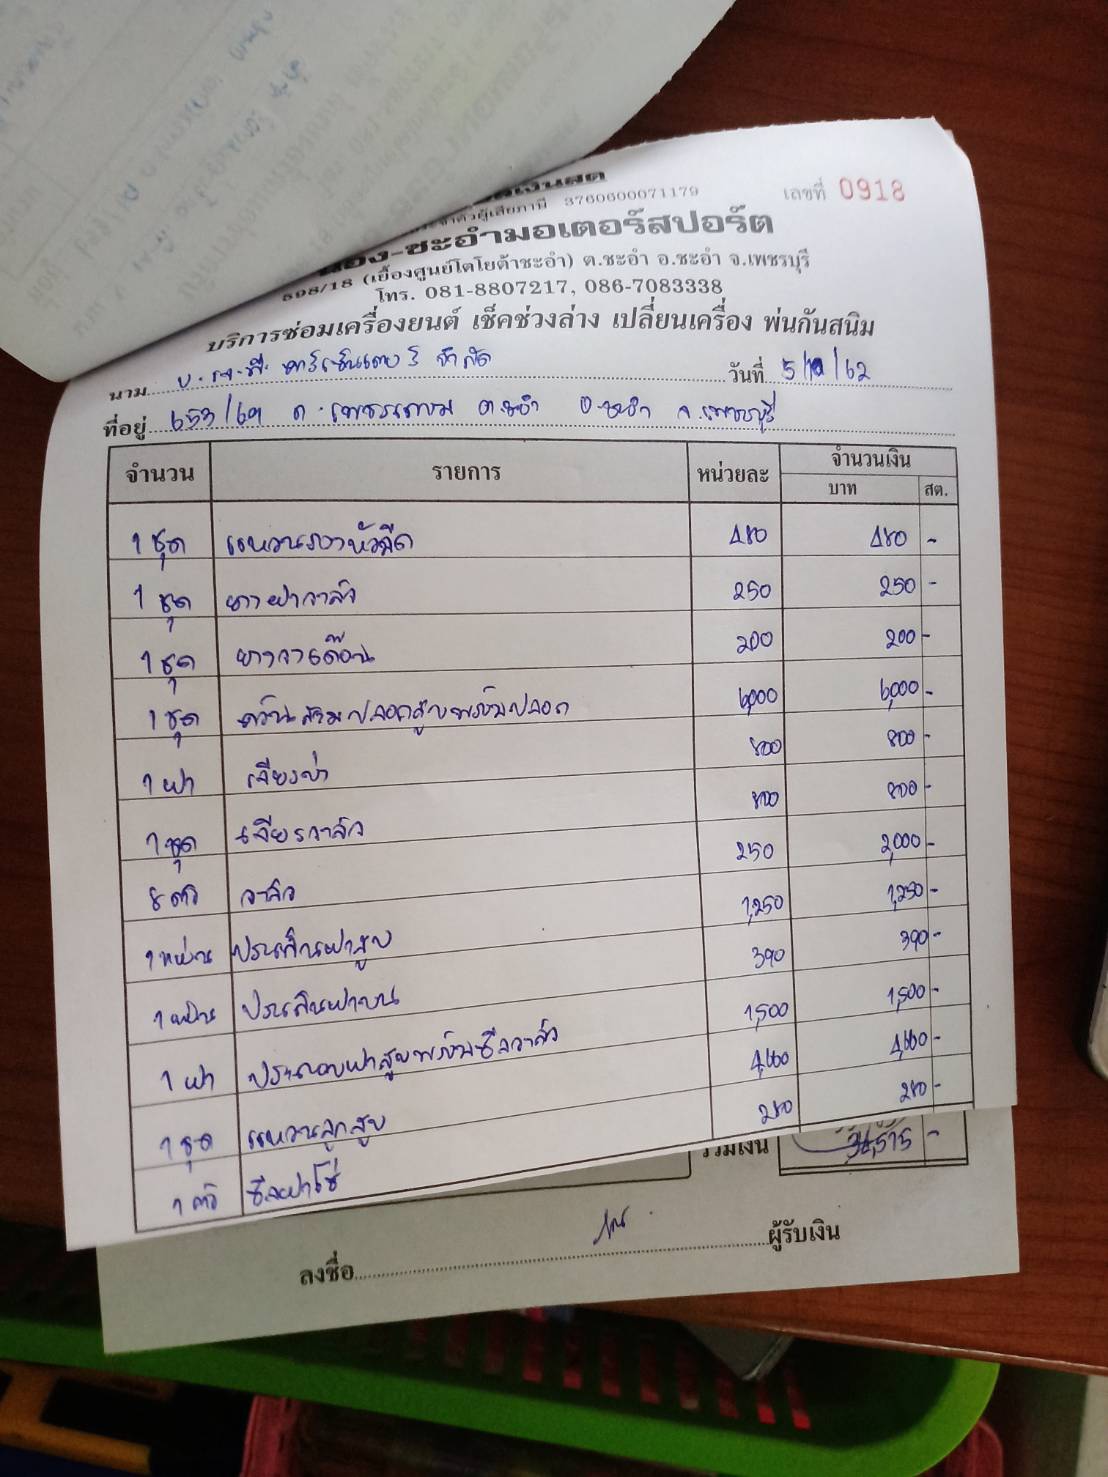 เงินสด
เลขที่ 0918
ตัวผู้เสียภาษี 3760600071179
-ชะอำมอเตอร์สปอร์ต
598/18 (เยื้องศูนย์โตโยต้าชะอำ) ต.ชะอำ อ.ชะอำ จ.เพชรบุรี
โทร. 081-8807217, 086-7083338
บริการซ่อมเครื่องยนต์ เช็คช่วงล่าง เปลี่ยนเครื่อง พ่นกันสนิม
นาม จำกัด วันที่ 5/ /62
ที่อยู่ ถ.เพชรเกษม ต.ชะอำ อ.ชะอำ จ.เพชรบุรี
จำนวน รายการ หน่วยละ จำนวนเงิน
บาท สต.
1 ชุด แหวนรองหัวฉีด 480 480 -
1 ชุด ยางฝาวาล์ว 250 250 -
1 ชุด 200 200 -
1 ชุด คว้านสวมปลอกสูบพร้อมปลอก 6,000 6,000 -
1 ฝา เจียรบ่า 800 800 -
1 ชุด เจียรวาล์ว 800 800 -
8 ตัว วาล์ว 250 2,000 -
1 แผ่น ประเก็นฝาสูบ 1,250 1,250 -
1 แผ่น ประเก็นฝาบน 390 390 -
1 ฝา ประกอบฝาสูบพร้อมซีลวาล์ว 1,500 1,500 -
1 ชุด แหวนลูกสูบ
1 ตัว ซีลฝาโซ่ 280 280 -
รวมเงิน -
ลงชื่อ ผู้รับเงิน